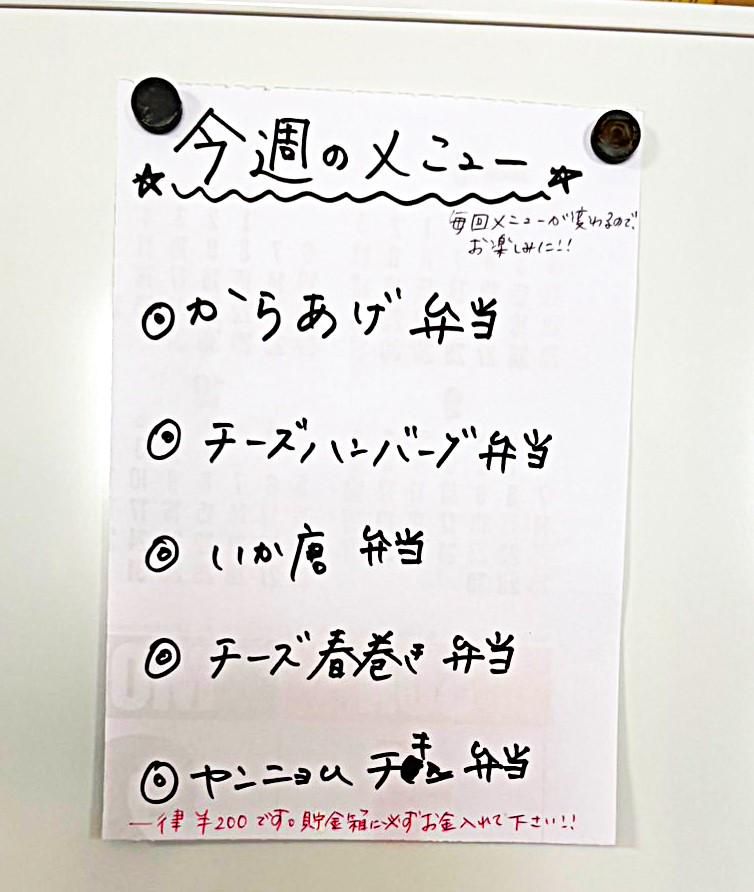 ☆今週のメニュー☆
毎回メニューが変わるので、
お楽しみに!!
◎からあげ弁当
◎チーズハンバーグ弁当
◎いか唐 弁当
◎チーズ春巻き 弁当
◎ヤンニョム チキン 弁当
一律 ¥200です。貯金箱に必ずお金入れて下さい!!